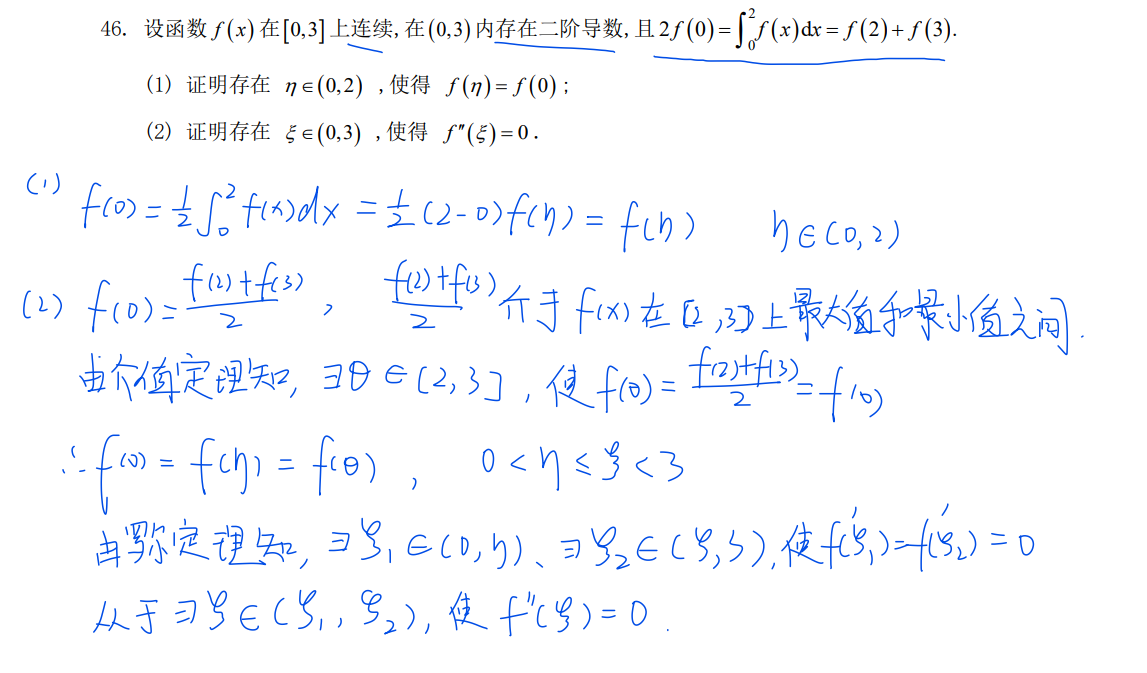 46. 设函数 f(x) 在[0,3]上连续,在(0,3)内存在二阶导数,且 2f(0)=∫₀²f(x)dx=f(2)+f(3).
(1) 证明存在 η∈(0,2) ,使得 f(η)=f(0);
(2) 证明存在 ξ∈(0,3) ,使得 f″(ξ)=0.
(1) f(0)=1/2∫₀²f(x)dx=1/2(2-0)f(η)=f(η) η∈(0,2)
(2) f(0)=(f(2)+f(3))/2, (f(2)+f(3))/2 介于f(x)在[2,3]上最大值和最小值之间.
由介值定理知,∃θ∈[2,3],使f(θ)=(f(2)+f(3))/2=f(0)
∴f(0)=f(η)=f(θ), 0<η≤ξ<3
由罗尔定理知,∃ξ₁∈(0,η)、∃ξ₂∈(ξ,3),使f′(ξ₁)=f′(ξ₂)=0
从于∃ξ∈(ξ₁,ξ₂),使f″(ξ)=0.